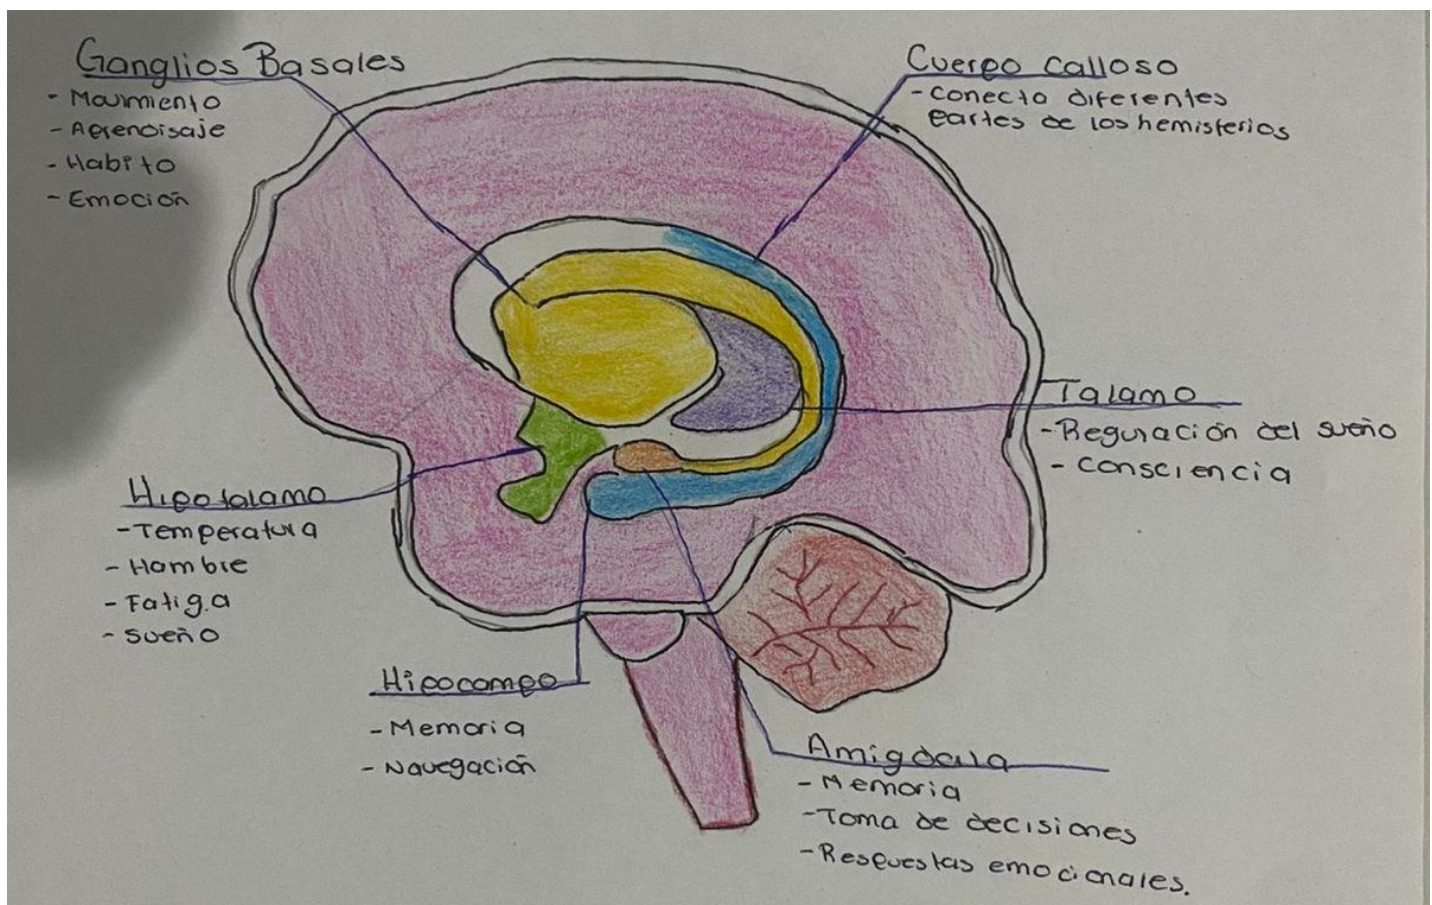 Ganglios Basales
- Movimiento
- Aprendisaje
- Habito
- Emoción
Cuerpo calloso
- conecta diferentes
partes de los hemisferios
Talamo
- Regulación del sueño
- consciencia
Hipotalamo
- Temperatura
- Hambre
- Fatiga
- sueño
Hipocampo
- Memoria
- Navegación
Amigdala
- Memoria
- Toma de decisiones
- Respuestas emocionales.